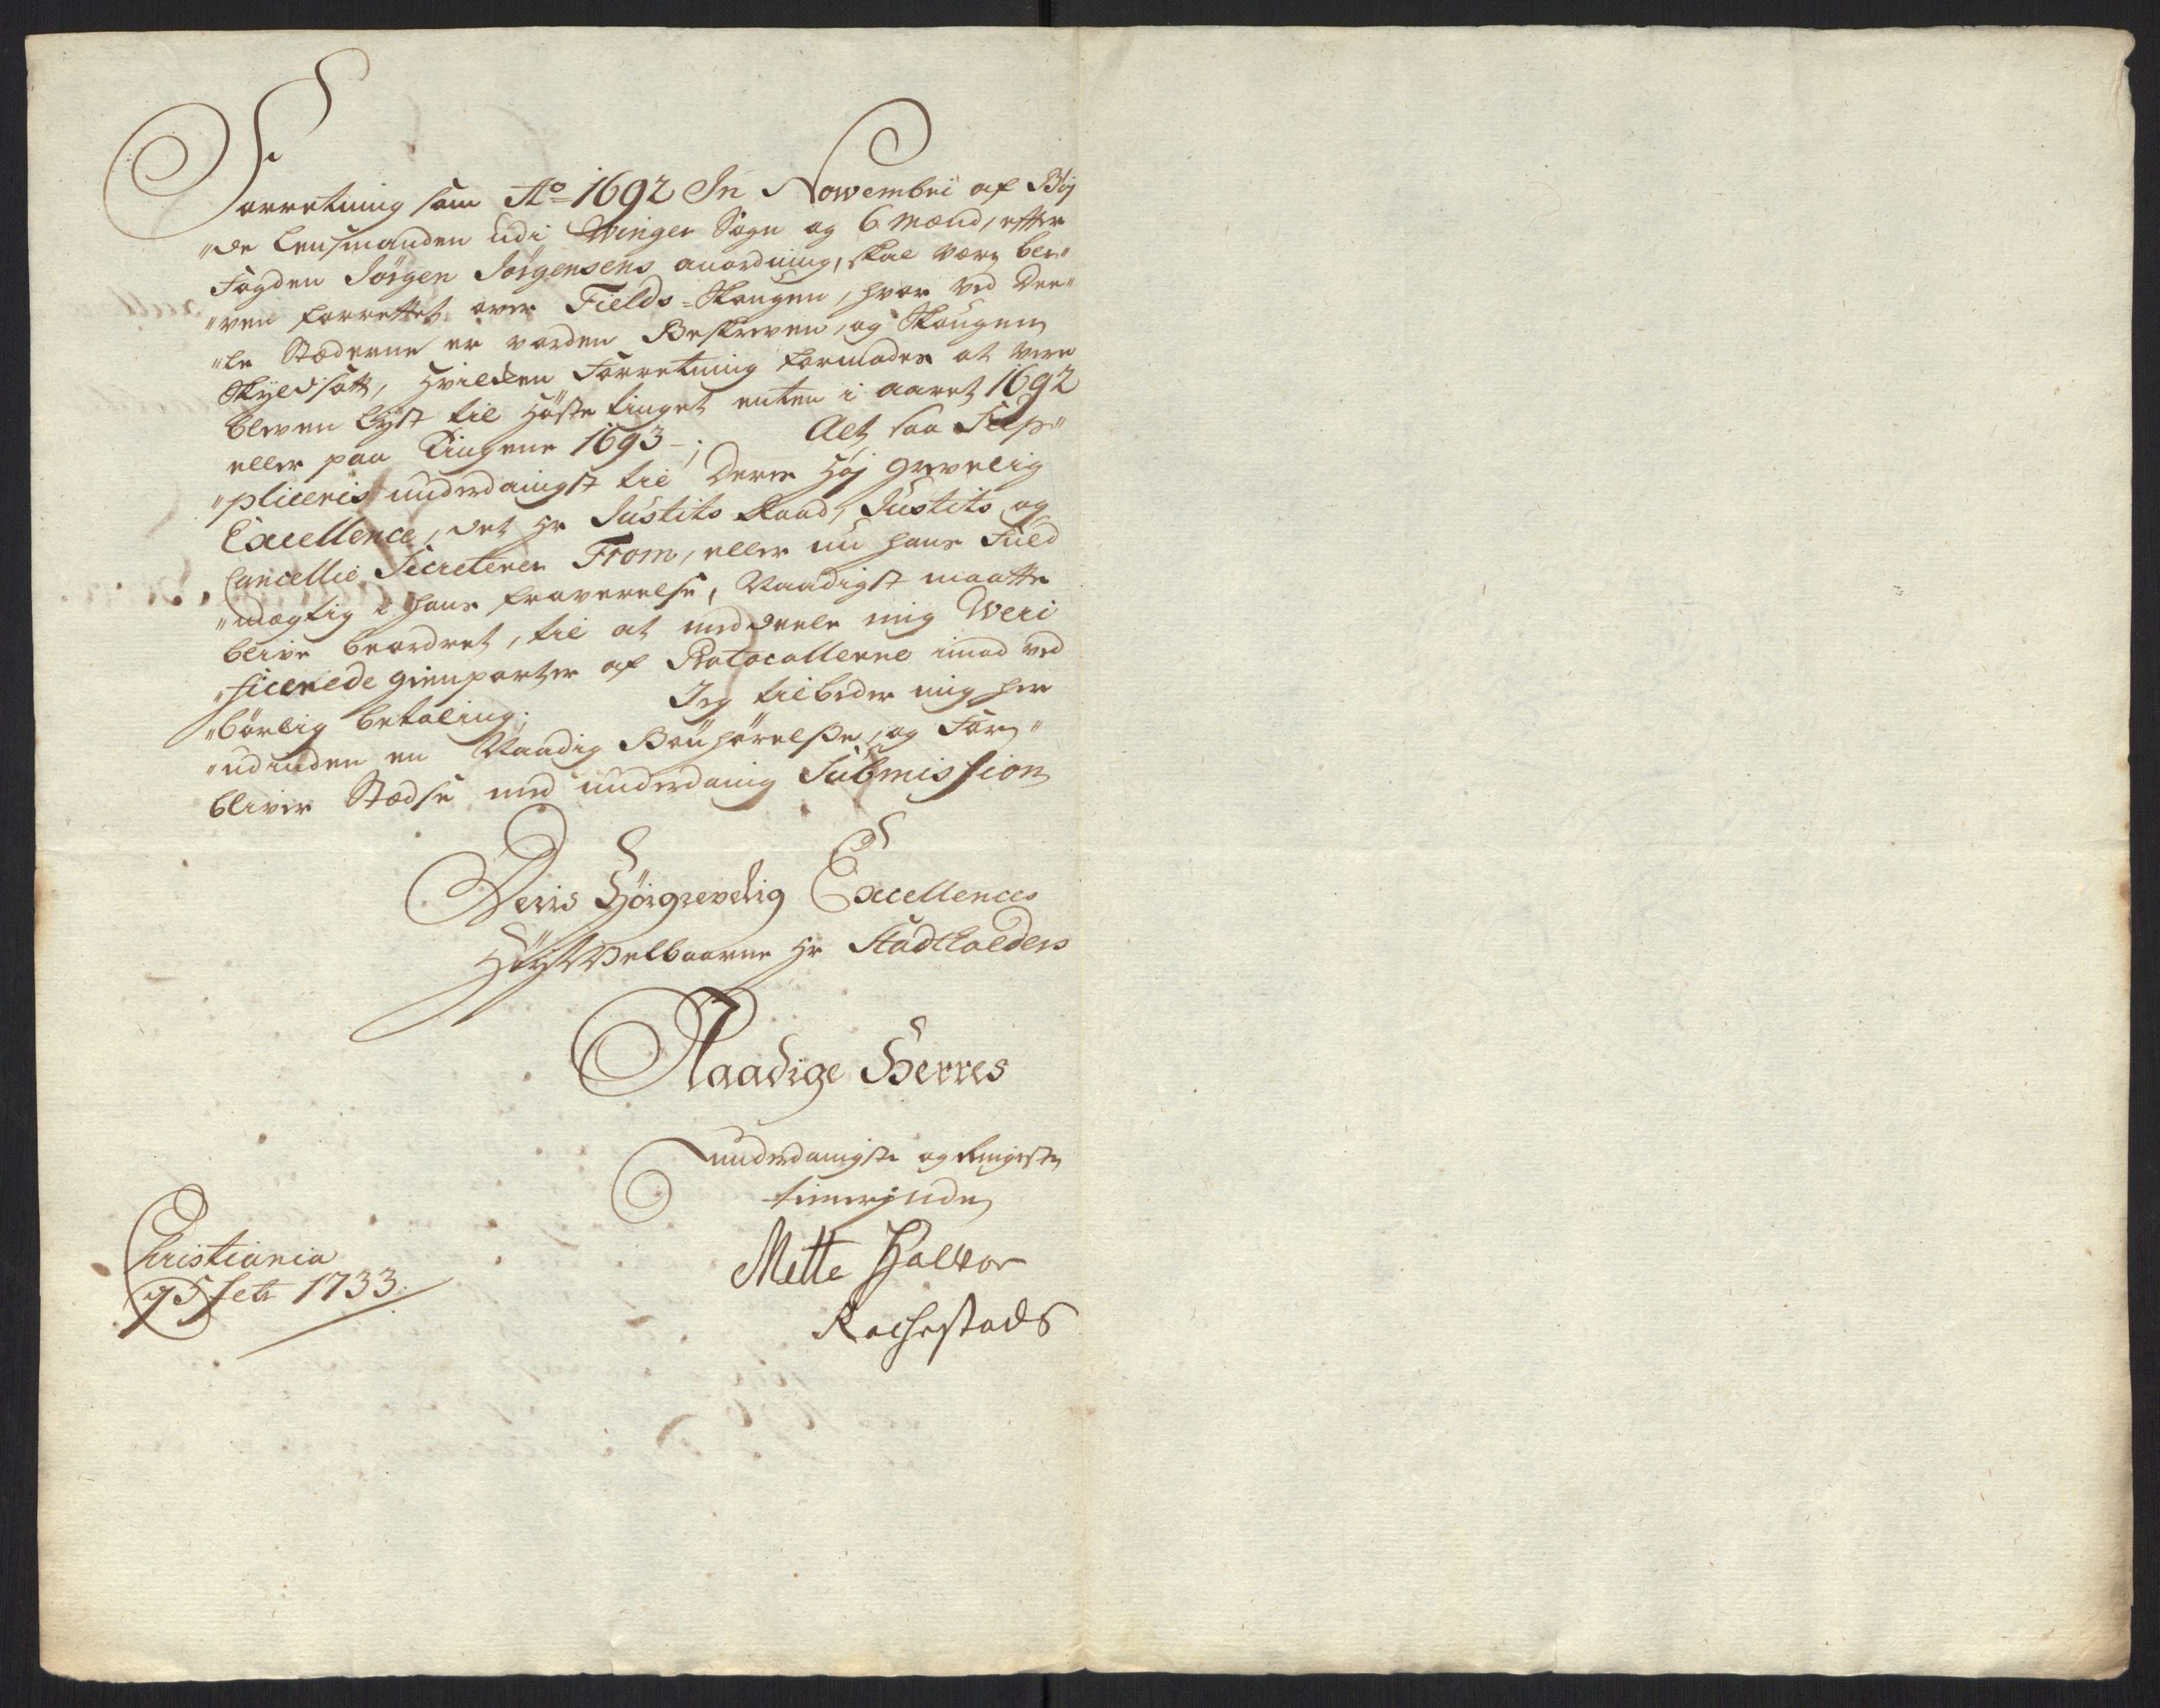 Forretning som Ao 1692 In Nowembri af Bøj
"de Lensmanden udi Winger Sogn og 6 Mænd, efter
Fogden Jörgen Jörgensens anordning, skal være ble"
"ven forrettet over Fields-Skougen, hvor ved Dee"
"le Stæderne er vorden Beskreven, og Skougen
Skyldsatt, hvilken Forretning formodes at være
bleven lÿst til Höste tinget enten i aaret 1692
eller paa Tingene 1693 -; Alt saa Sup"
"pliceris underdanigst til Deres Höj Grevelig
Excellence, det Hr Justits Raad, Justits og
Cancellie Secreterer From, eller nu hans Fuld
"mægtig i hans fraverelse, Naadigst maatte
blive beordret, til at meddeele mig Weri
"ficerede gienparter af Protocollerne imod ved
"börlig betaling; Jeg tilbeder mig her
"udinden en Naadig Bönhörelsse, og For"
bliver Stædse med underdanig Submission
Deris Höigrevelig Excellences
HöyWelbaarne Hr Stadtholders
Naadige Herres
underdanigste og Ringeste
tienerinde
Mette Halvor
Rachestads
Christiania
d 5 Feb 1733.